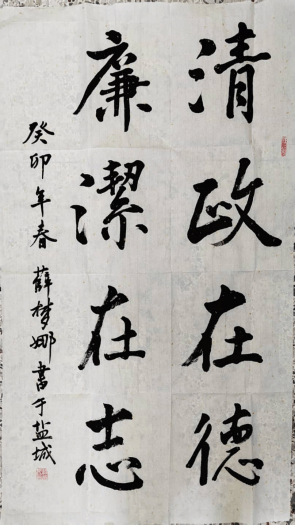 清政在德
廉潔在志
癸卯年春 薛梦娜書于盐城